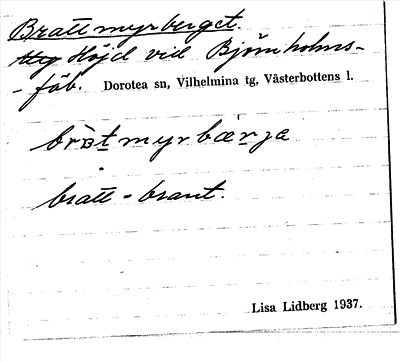 Brattmyrberget.
Höjd vid Björnholms-
-fäb. Dorotea sn, Vilhelmina tg, Västerbottens l.
bratt = brant.
Lisa Lidberg 1937.